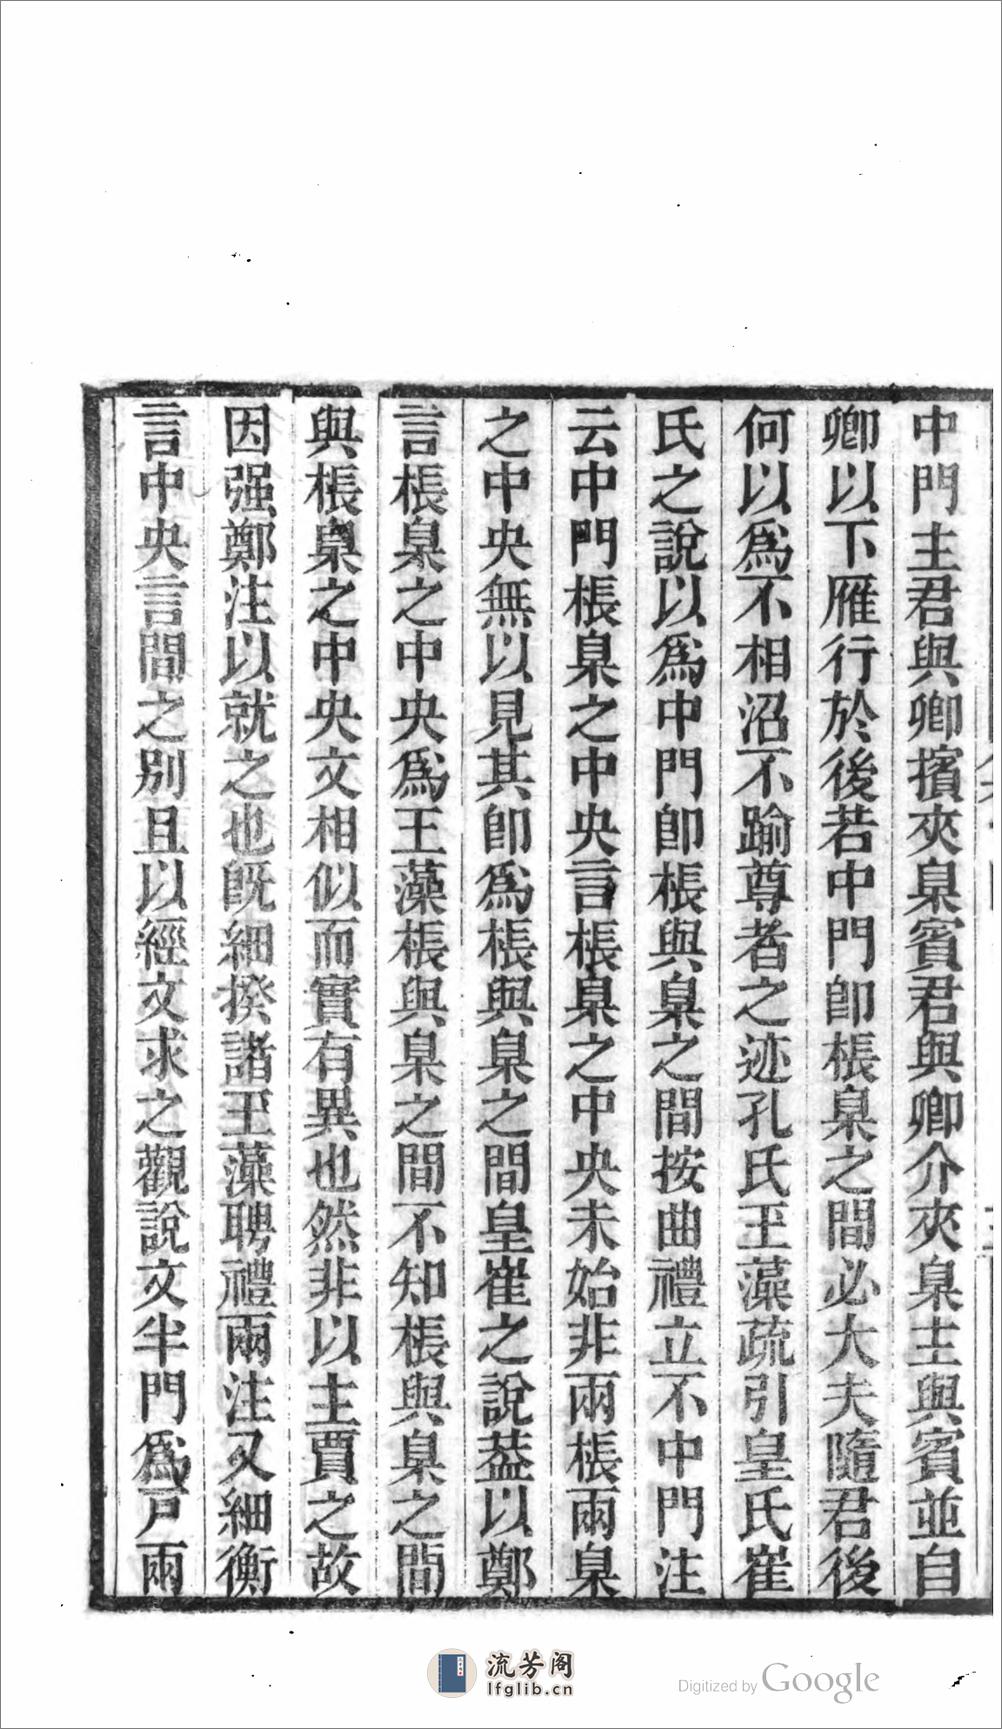 中門主君與卿擯夾臬賓君與卿介夾臬主與賓並自
卿以下雁行於後若中門卽棖臬之間必大夫隨君後
何以爲不相沿不踰尊者之迹孔氏玉藻疏引皇氏崔
氏之說以爲中門卽棖與臬之間按曲禮立不中門注
云中門棖臬之中央言棖臬之中央未始非兩棖兩臬
之中央無以見其卽爲棖與臬之間皇崔之說葢以鄭
言棖臬之中央爲玉藻棖與臬之間不知棖與臬之間
與棖臬之中央文相似而實有異也然非以主賈之故
因强鄭注以就之也旣細揆諸玉藻聘禮兩注又細衡
言中央言間之別且以經文求之觀說文半門爲戸兩
流芳阁
lfglib.cn
Digitized by Google